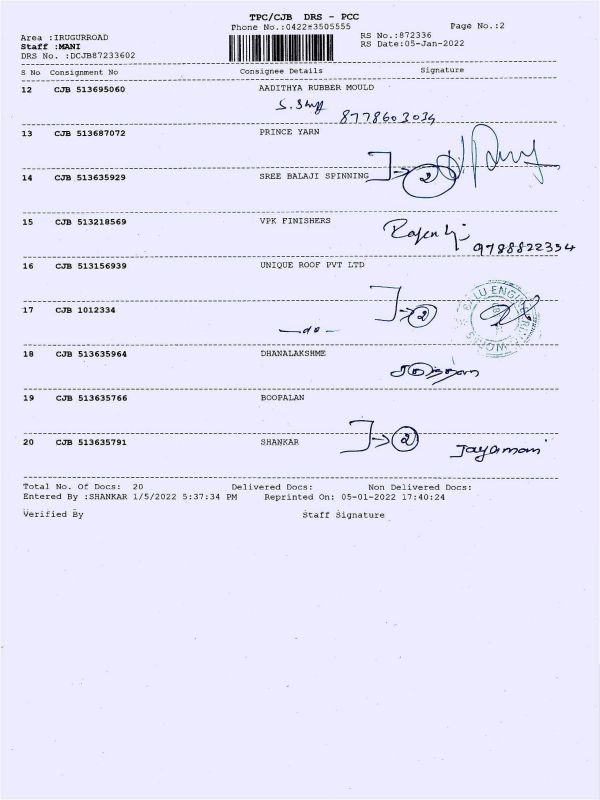 TPC/CJB DRS - PCC
Phone No.:0422±3505555
Page No.:2
Area :IRUGURROAD
RS No.:872336
Staff :MANI
RS Date:05-Jan-2022
DRS No. :DCJB87233602
S No Consignment No Consignee Details Signature
12 CJB 513695060 AADITHYA RUBBER MOULD
8778603034
13 CJB 513687072 PRINCE YARN
14 CJB 513635929 SREE BALAJI SPINNING
2
15 CJB 513218569 VPK FINISHERS
9788822354
16 CJB 513156939 UNIQUE ROOF PVT LTD
2
17 CJB 1012334
-do-
18 CJB 513635964 DHANALAKSHME
19 CJB 513635766 BOOPALAN
2
20 CJB 513635791 SHANKAR
Jayamani
Total No. Of Docs: 20 Delivered Docs: Non Delivered Docs:
Entered By :SHANKAR 1/5/2022 5:37:34 PM Reprinted On: 05-01-2022 17:40:24
Verified By Staff Signature